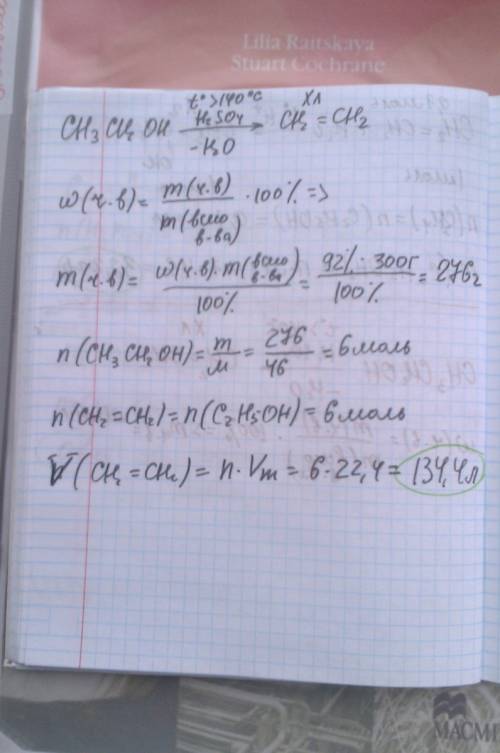 Lilia Raitskaya
Stuart Cochrane
t°>140°C
H₂SO₄
X л
CH₃CH₂OH → CH₂=CH₂
-H₂O
w(ч.в) = m(ч.в) / m(всего в-ва) · 100% =>
m(ч.в) = w(ч.в)·m(всего в-ва) / 100% = 92%·300г / 100% = 276г
n(CH₃CH₂OH) = m/M = 276/46 = 6 моль
n(CH₂=CH₂) = n(C₂H₅OH) = 6 моль
V(CH₂=CH₂) = n·Vm = 6·22,4 = 134,4 л
MACMI